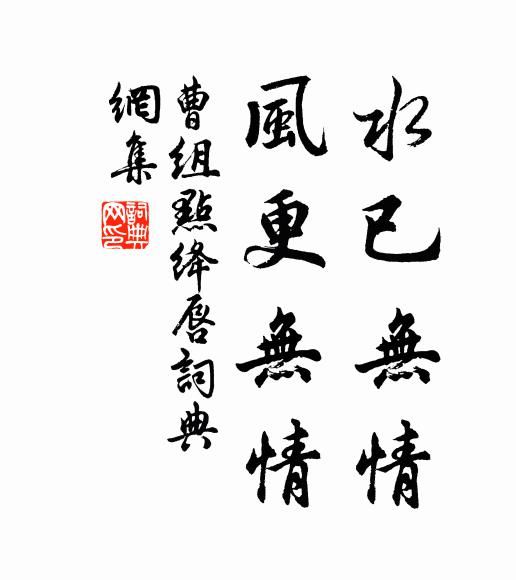 水已無情
風更無情
曹組點絳唇詞典
網集
詞典
网印